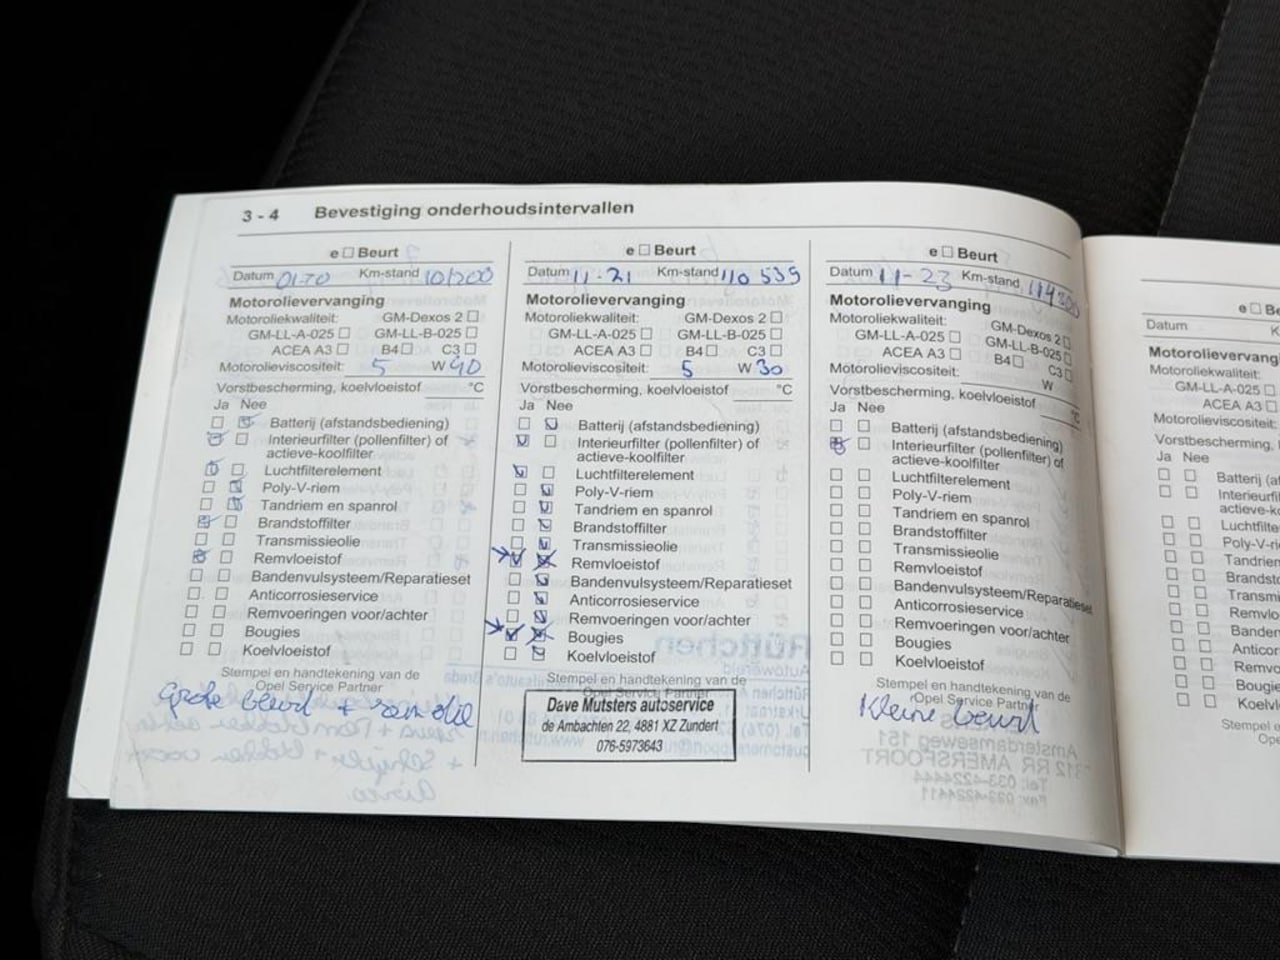 3 - 4 Bevestiging onderhoudsintervallen
e ☐ Beurt
Datum Km-stand 101200
Motorolievervanging
Motoroliekwaliteit: GM-Dexos 2 ☐
GM-LL-A-025 ☐ GM-LL-B-025 ☐
ACEA A3 ☐ B4 ☐ C3 ☐
Motorolieviscositeit: 5 W 40
Vorstbescherming, koelvloeistof °C
Ja Nee
Batterij (afstandsbediening)
Interieurfilter (pollenfilter) of
actieve-koolfilter
Luchtfilterelement
Poly-V-riem
Tandriem en spanrol
Brandstoffilter
Transmissieolie
Remvloeistof
Bandenvulsysteem/Reparatieset
Anticorrosieservice
Remvoeringen voor/achter
Bougies
Koelvloeistof
Stempel en handtekening van de
Opel Service Partner
Grote beurt + remolie
e ☐ Beurt
Datum 11-21 Km-stand 110 539
Motorolievervanging
Motoroliekwaliteit: GM-Dexos 2 ☐
GM-LL-A-025 ☐ GM-LL-B-025 ☐
ACEA A3 ☐ B4 ☐ C3 ☐
Motorolieviscositeit: 5 W 30
Vorstbescherming, koelvloeistof °C
Ja Nee
Batterij (afstandsbediening)
Interieurfilter (pollenfilter) of
actieve-koolfilter
Luchtfilterelement
Poly-V-riem
Tandriem en spanrol
Brandstoffilter
Transmissieolie
Remvloeistof
Bandenvulsysteem/Reparatieset
Anticorrosieservice
Remvoeringen voor/achter
Bougies
Koelvloeistof
Stempel en handtekening van de
Opel Service Partner
Dave Mutsters autoservice
de Ambachten 22, 4881 XZ Zundert
076-5973643
e ☐ Beurt
Datum 11-23 Km-stand 114200
Motorolievervanging
Motoroliekwaliteit: GM-Dexos 2 ☐
GM-LL-A-025 ☐ GM-LL-B-025 ☐
ACEA A3 ☐ B4 ☐ C3 ☐
Motorolieviscositeit: W
Vorstbescherming, koelvloeistof °C
Ja Nee
Batterij (afstandsbediening)
Interieurfilter (pollenfilter) of
actieve-koolfilter
Luchtfilterelement
Poly-V-riem
Tandriem en spanrol
Brandstoffilter
Transmissieolie
Remvloeistof
Bandenvulsysteem/Reparatieset
Anticorrosieservice
Remvoeringen voor/achter
Bougies
Koelvloeistof
Stempel en handtekening van de
Opel Service Partner
Kleine beurt
e ☐ Be
Datum K
Motorolievervang
Motoroliekwaliteit:
GM-LL-A-025 ☐
ACEA A3 ☐
Motorolieviscositeit:
Vorstbescherming,
Ja Nee
Batterij (af
Interieurfi
actieve-ko
Luchtfilte
Poly-V-ri
Tandriem
Brandst
Transmi
Remvlo
Banden
Anticor
Remvo
Bougie
Koelvl
Stempel
Ope